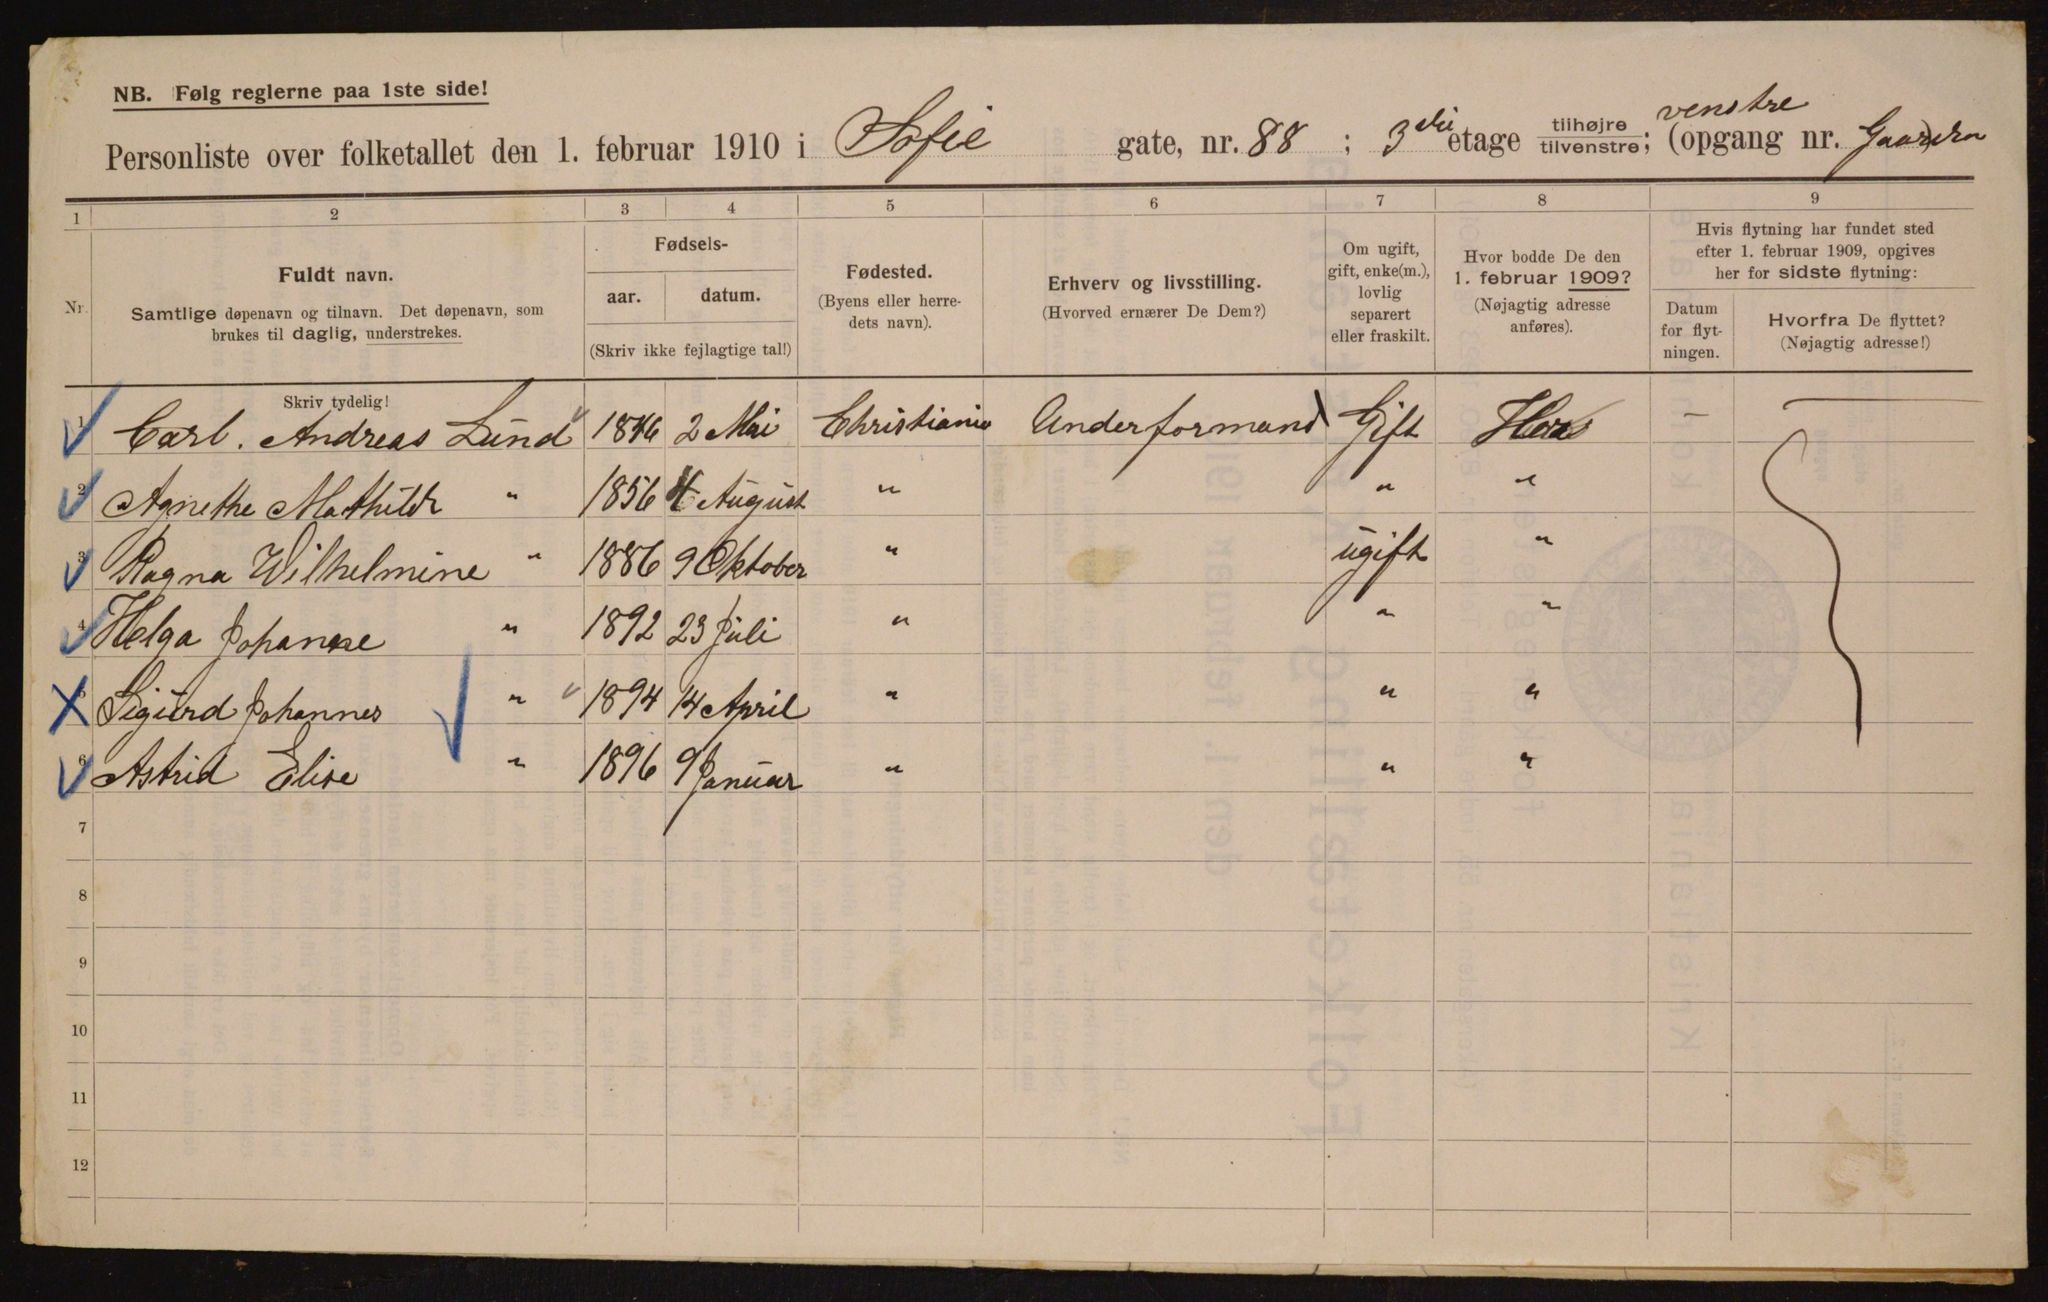 NB. Følg reglerne paa 1ste side!
Personliste over folketallet den 1. februar 1910 i Sofie gate, nr. 88 ; 3die etage tilhøjre tilvenstre; venstre (opgang nr. )
1 2 3 4 5 6 7 8 9
Nr.
Fuldt navn.
Samtlige døpenavn og tilnavn. Det døpenavn, som
brukes til daglig, understrekes.
Fødsels-
aar. datum.
(Skriv ikke fejlagtige tal!)
Fødested.
(Byens eller herre-
dets navn).
Erhverv og livsstilling.
(Hvorved ernærer De Dem?)
Om ugift,
gift, enke(m.),
lovlig
separert
eller fraskilt.
Hvor bodde De den
1. februar 1909?
(Nøjagtig adresse
anføres).
Hvis flytning har fundet sted
efter 1. februar 1909, opgives
her for sidste flytning:
Datum
for flyt-
ningen.
Hvorfra De flyttet?
(Nøjagtig adresse!)
Skriv tydelig!
1 Carl. Andreas Lund 1846 2 Mai Christiania Underformand Gift —
2 Agnethe Mathilde " 1856 4 August " " "
3 Ragna Wilhelmine " 1886 9 Oktober " ugift "
4 Helga Johanne " 1892 23 Juli " " "
5 Sigurd Johannes " 1894 14 April " " "
6 Astrid Elise " 1896 9 Januar " " "
7
8
9
10
11
12